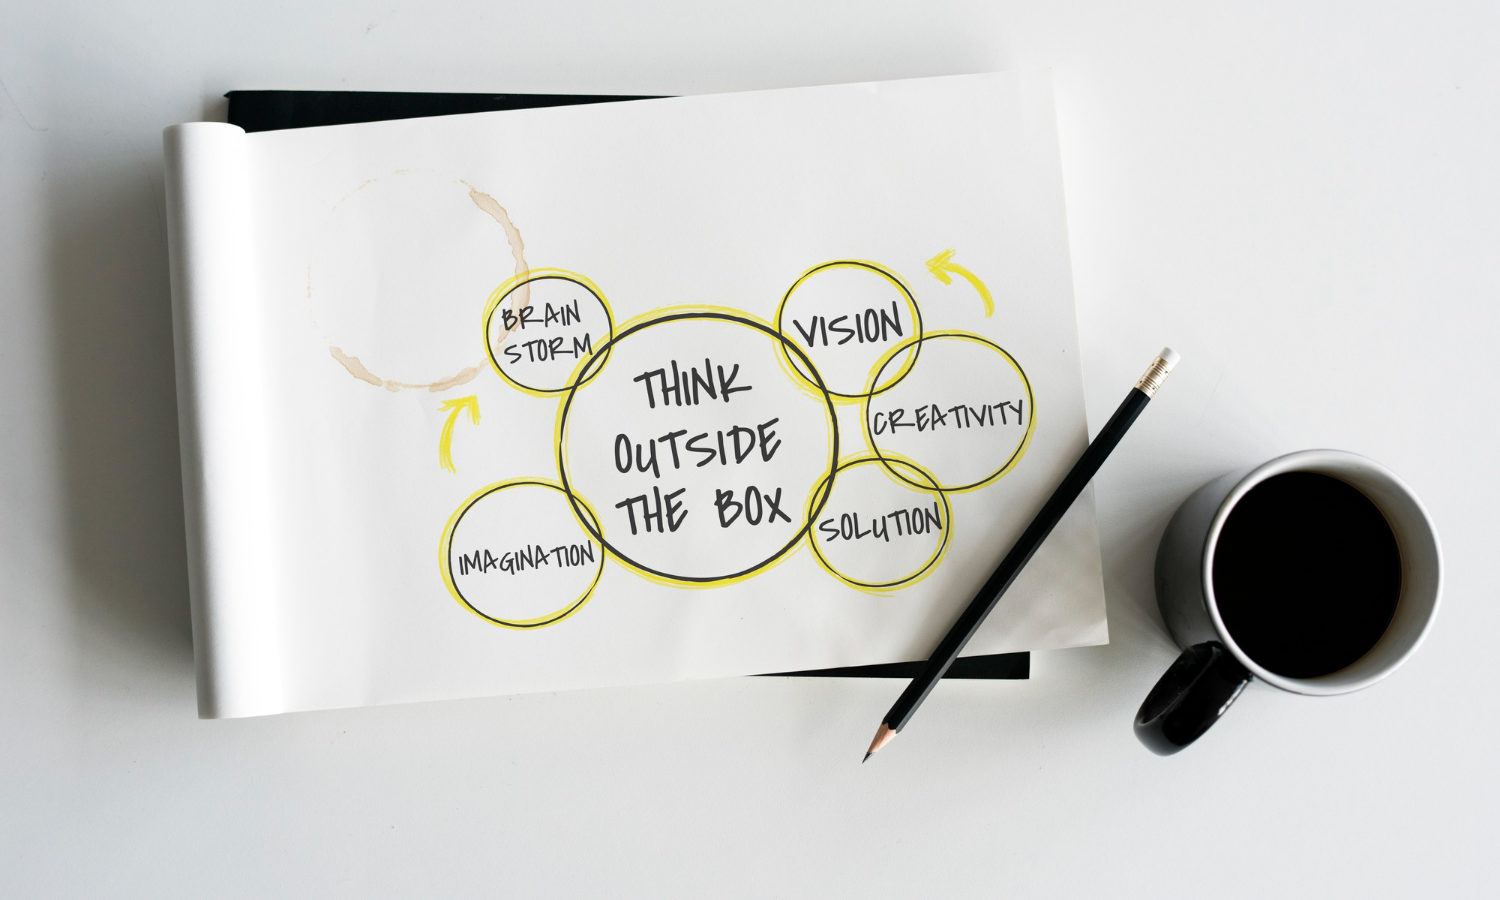 BRAIN
STORM
THINK
OUTSIDE
THE BOX
VISION
CREATIVITY
SOLUTION
IMAGINATION